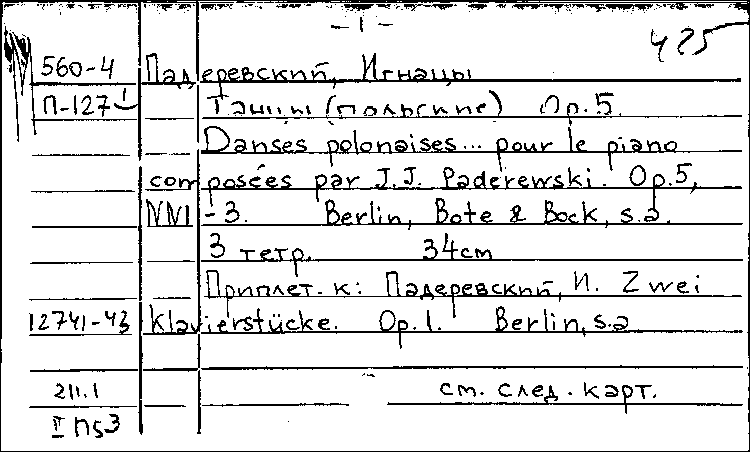 - 1 -
425
560-4 Падеревский, Игнацы
П-127 Танцы (польские) Op. 5.
Danses polonaises... pour le piano
composées par J.J. Paderewski. Op. 5,
NN1-3. Berlin, Bote & Bock, s.a.
3 тетр. 34см
Приплет. к: Падеревский, И. Zwei
12741-43 Klavierstücke. Op. 1. Berlin, s.a
211.1 см. след. карт.